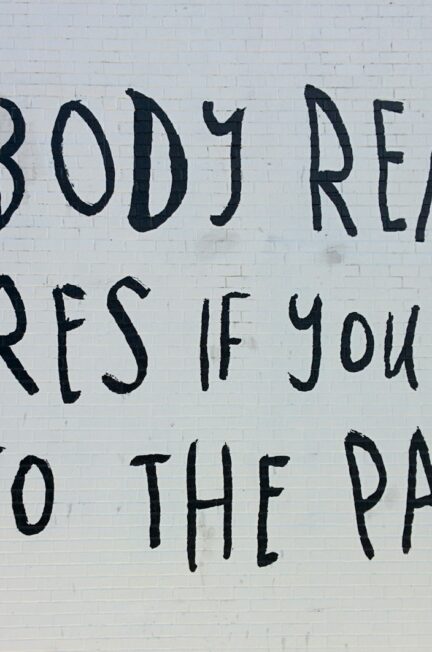 BODY REA
RES IF YOU
TO THE PA